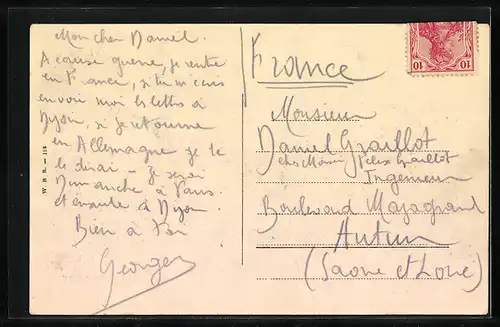 Mon cher Daniel.
A cause guerre, je rentre
en France, si tu m'écris
envoie moi les lettres à
Dijon, si je retourne
en Allemagne je te
le dirai - Je serai
Dimanche à Paris
et ensuite à Dijon.
Bien à toi
Georges
W. B. B. - 112
France
10 10
Monsieur
Daniel Graillot
chez Félix Graillot
Ingénieur
Boulevard Mazagrand
Autun
(Saone et Loire)